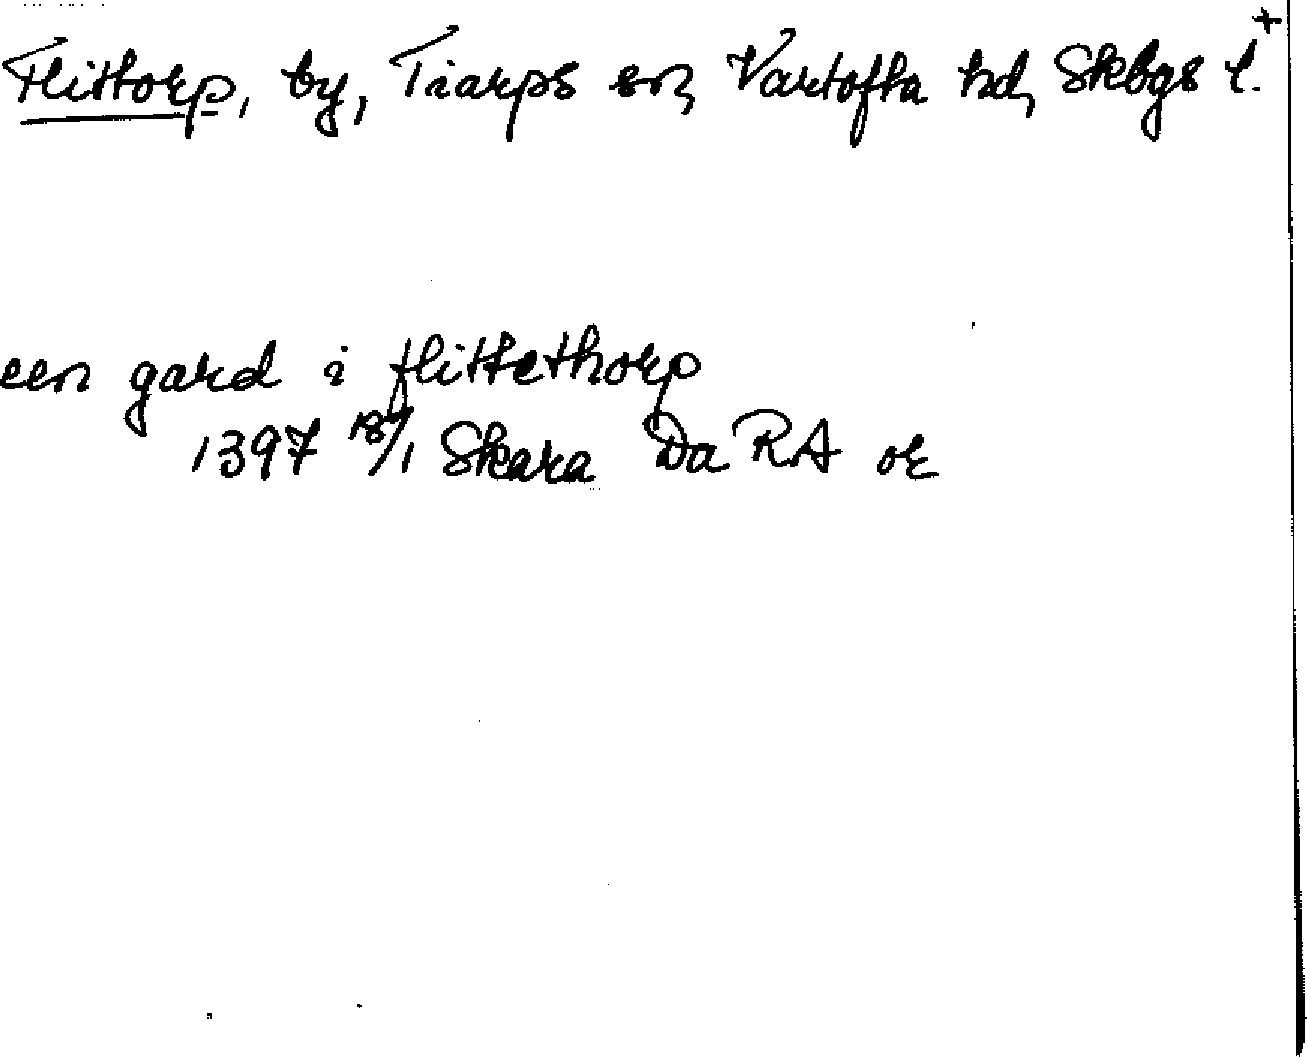 Flittorp, by, Tiarps sn, Vartofta hd, Skbgs l. +
een gard i flittethorp
1397 18/1 Skara Da RA or